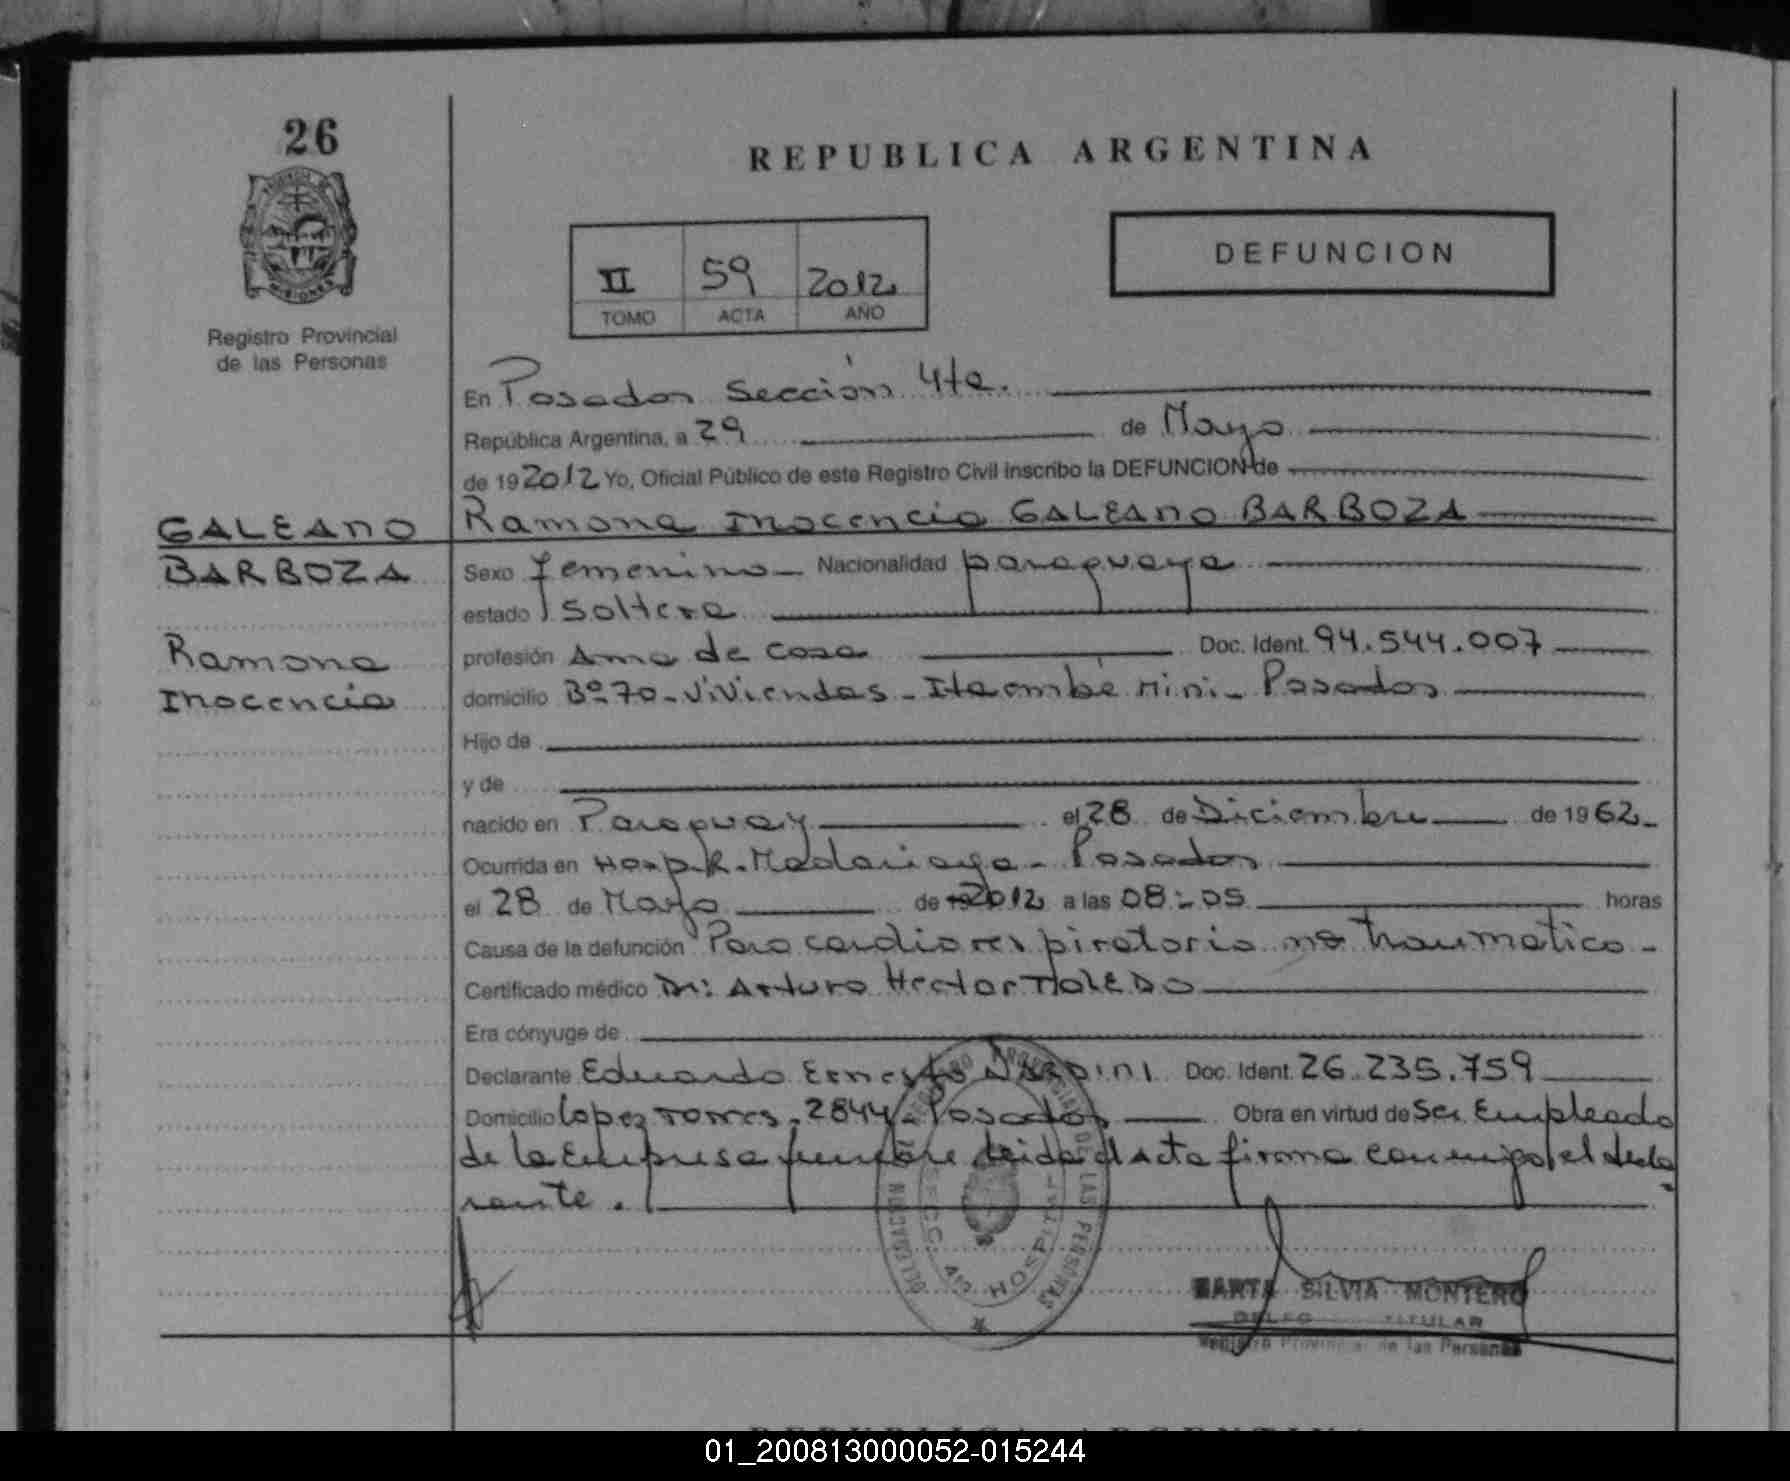 26
REPUBLICA ARGENTINA
DEFUNCION
II 59 2012
TOMO ACTA AÑO
MISIONES
Registro Provincial
de las Personas
En Posadas Sección 4ta.
República Argentina, a 29 de Mayo
de 19 2012 Yo, Oficial Público de este Registro Civil inscribo la DEFUNCION de
GALEANO
BARBOZA
Ramona
Inocencia
Ramona Inocencia GALEANO BARBOZA
Sexo femenino Nacionalidad paraguaya
estado soltera
profesión Ama de casa Doc. Ident. 94.544.007
domicilio Bº 70 - Viviendas - Itaembé Mini - Posadas
Hijo de
y de
nacido en Paraguay el 28 de Diciembre de 1962
Ocurrida en Hosp. R. Madariaga - Posadas
el 28 de Mayo de 19 2012 a las 08:05 horas
Causa de la defunción Paro cardiorespiratorio no traumatico -
Certificado médico Dr: Arturo Hector TOLEDO
Era cónyuge de
Declarante Eduardo Ernesto Doc. Ident. 26.235.759
Domicilio Lopez Torres 2844 - Posadas Obra en virtud de Ser Empleado
de la Empresa funebre leida el Acta firma conmigo el decla-
rante.
HOSPITAL
MARTA SILVIA MONTERO
TITULAR
Registro Provincial de las Personas
REPUBLICA ARGENTINA
01_200813000052-015244